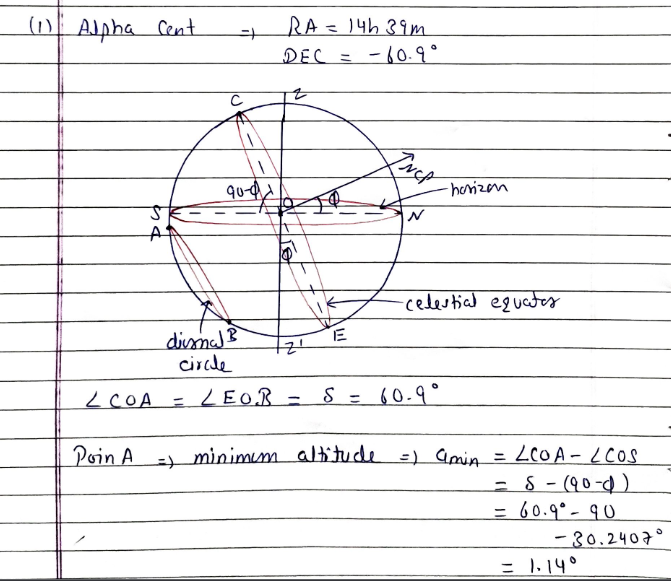 (1) Alpha Cent ⇒ RA = 14h 39m
DEC = -60.9°
C
Z
NCP
90-ϕ
O
ϕ
horizon
S
N
A
ϕ
celestial equator
diurnal circle
B
Z'
E
∠COA = ∠EOB = δ = 60.9°
Poin A ⇒ minimum altitude ⇒ amin = ∠COA - ∠COS
= δ - (90-ϕ)
= 60.9° - 90
- 30.2407°
= 1.14°